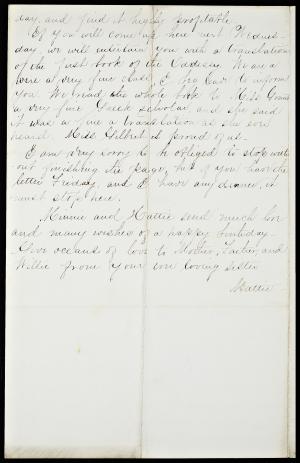 day, and find it highly profitable.
If you will come up here next Wednes-
day, we will entertain you with a translation
of the first book of the Oadisey. We are a
were a very fine class, I beg leave to inform
you. We read the whole book to Miss
a very fine Greek scholar and she said
it was as fine a translation as she ever
heard. Miss Gilbert is proud of us—
I am very sorry to be obliged to stop with
out finishing the page, but if you have the
letter Friday, and I have any dinner, it
must stop here.
Minnie and Hattie send much love
and many wishes of a happy birthday.
Give oceans of love to Mother, Father, and
Willie from your own loving sister
Hattie